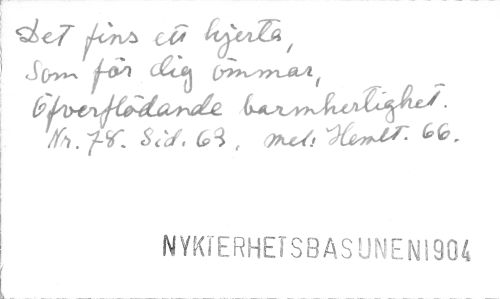 Det fins ett hjerta,
Som för dig ömmar,
Öfverflödande barmhertighet.
Nr. 78. Sid. 63, mel: Hemlt. 66.
NYKTERHETSBASUNEN1904